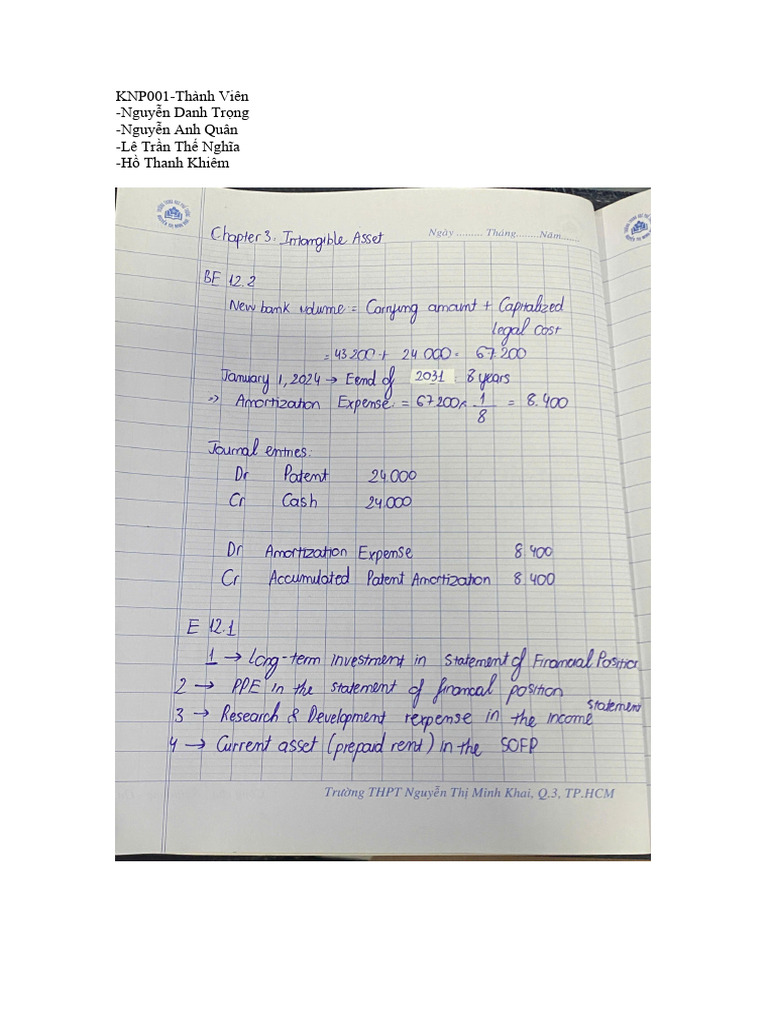 KNP001-Thành Viên
-Nguyễn Danh Trọng
-Nguyễn Anh Quân
-Lê Trần Thế Nghĩa
-Hồ Thanh Khiêm
Chapter 3: Intangible Asset
Ngày ......... Tháng........Năm......
BE 12.2
New bank volume = Carrying amount + Capitalized
legal cost
= 43 200 + 24 000 = 67.200
January 1, 2024 → Eend of 2031 : 8 years
=> Amortization Expense = 67 200 × 1/8 = 8.400
Journal entries:
Dr Patent 24.000
Cr Cash 24.000
Dr Amortization Expense 8 400
Cr Accumulated Patent Amortization 8.400
E 12.1
1 → Long-term investment in Statement of Financial Position
2 → PPE in the statement of financal position
3 → Research & Development rexpense in the income statement
4 → Current asset (prepaid rent) in the SOFP
Trường THPT Nguyễn Thị Minh Khai, Q.3, TP.HCM